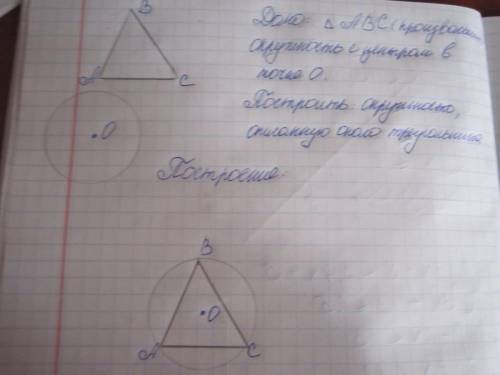 B
Дано: △ ABC (произвольн
окружность с центром в
A
C
точке O.
O
Построить: окружность,
описанную около треугольника.
Построение:
B
O
A
C